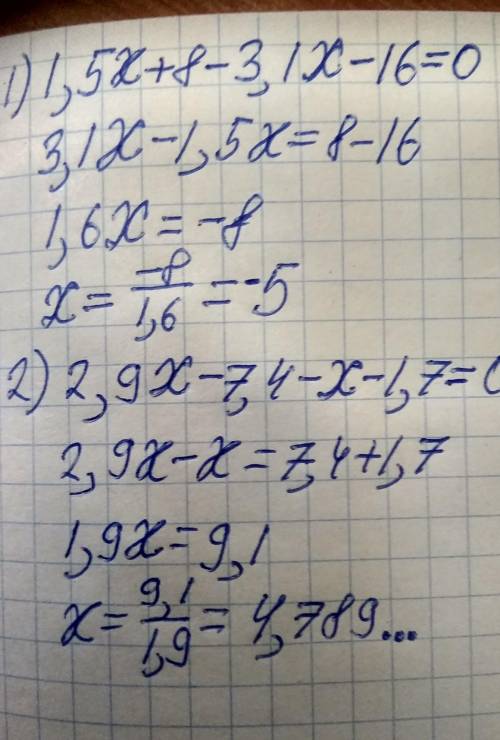 1) 1,5x+8-3,1x-16=0
3,1x-1,5x=8-16
1,6x=-8
x=\frac{-8}{1,6}=-5
2) 2,9x-7,4-x-1,7=0
2,9x-x=7,4+1,7
1,9x=9,1
x=\frac{9,1}{1,9}=4,789...